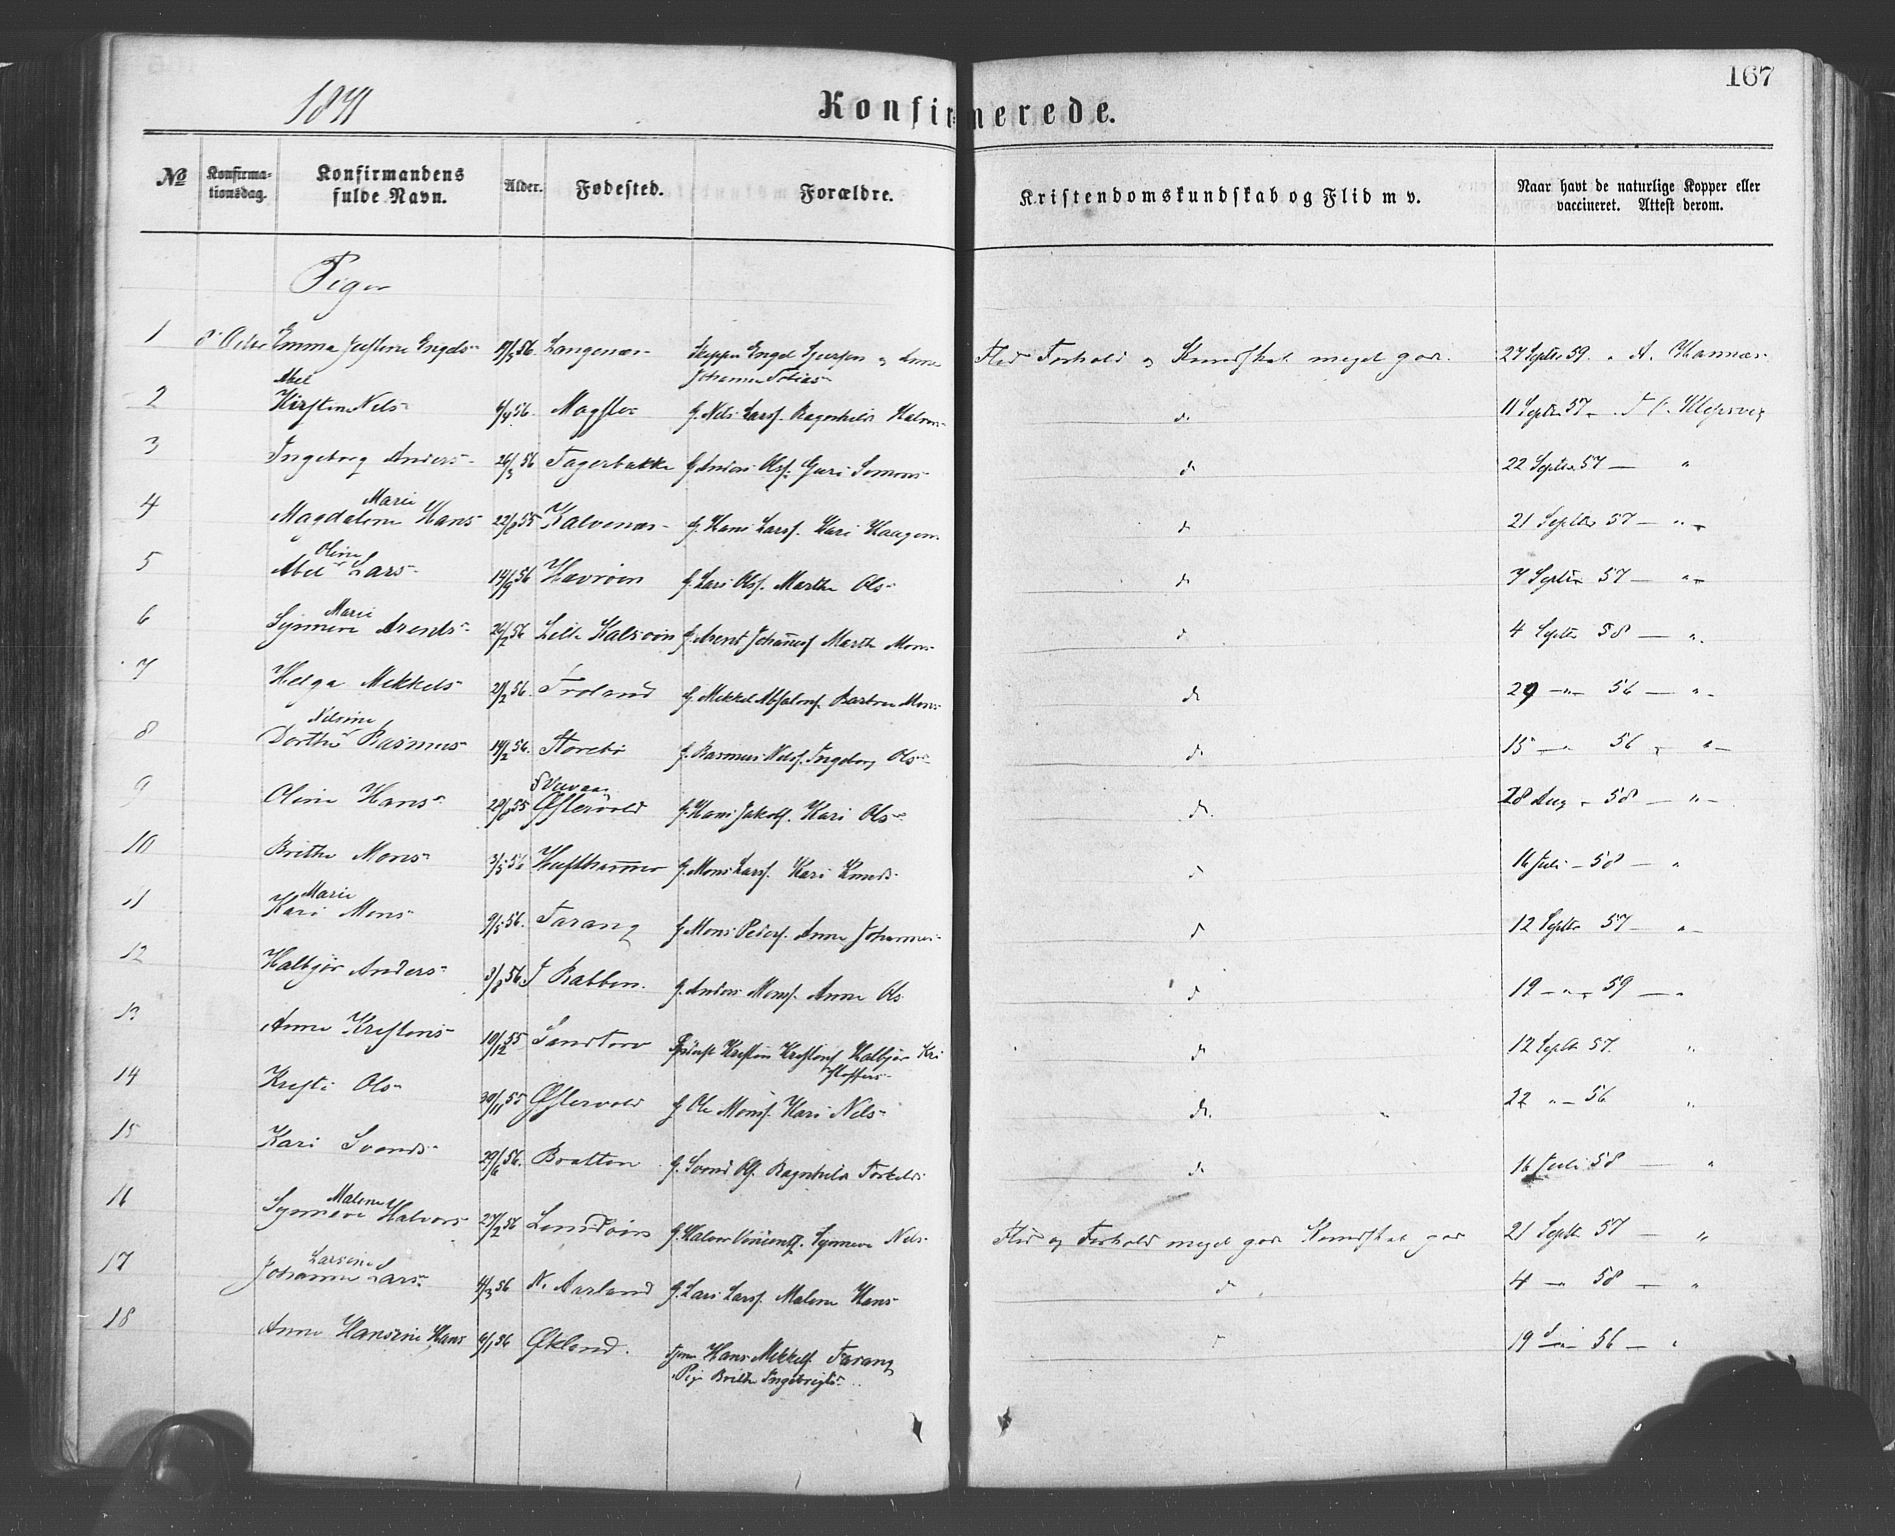 167
1871
Konfirmerede.
№ Konfirmationsdag. Konfirmandens fulde Navn. Alder. Fødested. Forældre. Kristendomskundskab og Flid m v. Naar havt de naturlige Kopper eller vaccineret. Attest derom.
Piger
1 8 Octbr Emma Justine Engels- 19/3 56 Langenæs Skipper Engel og Anne Johanne Tobias- Flid Forhold og Kundskab meget god. 24 Septbr 59 " A.
2 Abel Kirsten Nels- 4/4 56. Magster G. Nels Larss. Ragnhilda Halvors- do. 11 Septbr 57 —
3 Ingeborg Anders- 26/3 56 Fagerbakke G. Anders Olss. Guri Simons- do 22 Septbr. 57 — "
4 Magdalene Marie Hans- 22/8 55 Kalvenæs- G. Hans Larss. Kari Haagen- do 21 Septbr 57 — "
5 Abel Oline Lars- 14/9 56 Havrøen G. Lars Olss. Marthe Ols- do 7 Septbr 57 — "
6 Synneve Marie Arents- 26/2 56 Lille Kalsøen G. Arent Johanness Marthe Mons- do 4 Septbr 58 — "
7 Helga Mikkels- 21/2 56. Troland G. Mikkel Absalons. Barbra Mons- do 29 — " — 56 — "
8 Dorthe Nelsine Rasmus- 19/2 56. Storebø G. Rasmus Nelss. Ingeborg Ols- do 15 — " 56 — "
9 Oline Hans- 29/8 55 Østervold G. Hans Jakobs. Kari Ols- do. 28 Aug - 58 — "
10 Brithe Mons- 3/5 56 Hufthammer G. Mons Larss. Kari Knuds- do 16 Juli - 58 — "
11 Kari Marie Mons- 9/5 56. Tarang G. Mons Peders. Anne Johannes- do 12 Septbr 57 — "
12 Halbjør Anders- 3/8 56. Rabben. G. Anders Monss. Anne Ols do 19 — " — 59 — "
13 Anne Kristens- 10/12 55 Sandtorv Kristen Kristens Halbjør Kristoffers- do 12 Septbr 57. "
14 Kristi Ols- 30/11 55 Østervold G. Ole Monss. Kari Nels- do. 22 " — 56 "
15 Kari Svends- 29/6 56. Bratten G. Svend Ols. Ragnhilda Torkelds do 16 Juli 58 — "
16 Synneve Malene Halvors- 27/2 56 Lunsdøen G. Halvor Vincents. Synneve Nels- Flid og Forhold meget god Kundskab god 21 Septbr 57 — "
17 Johanne Larsine Lars- 4/3 56 N. Aarland G. Lars Larss. Malene Hans- do 4 — " 58 — "
18 Anne Hansine Hans 4/1 56 Økland. Hans Mikkels Tarang Pige Brithe Ingebrigts- do 19 — " — 56 — "